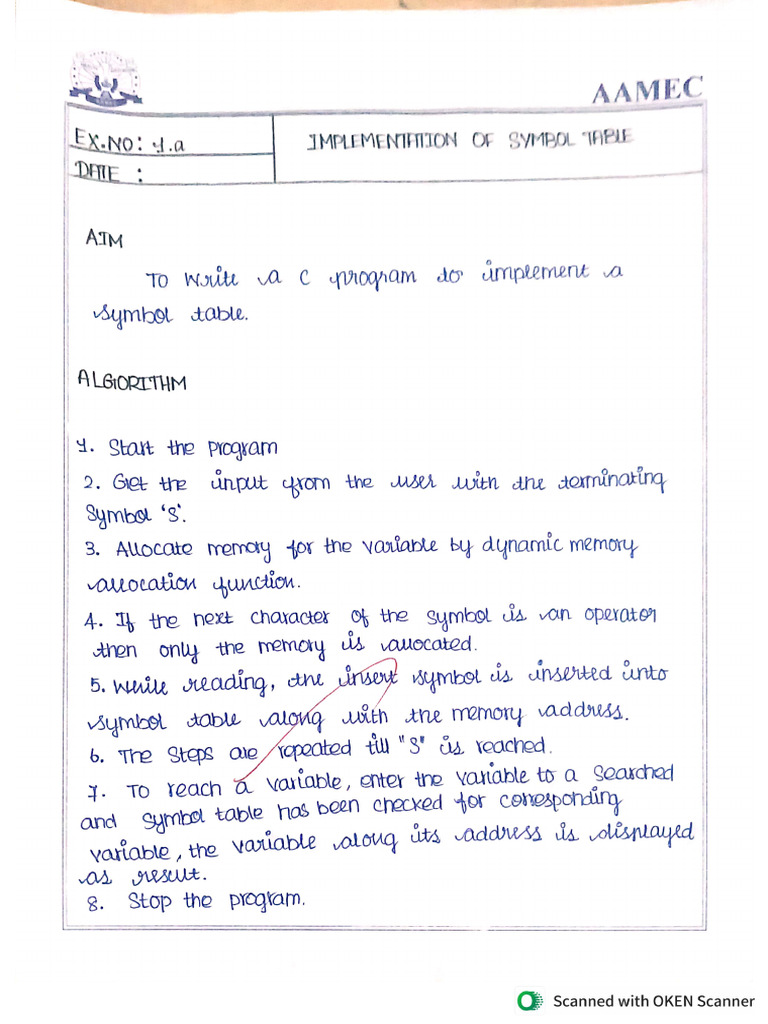 AAMEC
EX.NO: 1.a
IMPLEMENTATION OF SYMBOL TABLE
DATE :
AIM
To write a C program to implement a
symbol table.
ALGORITHM
1. Start the program
2. Get the input from the user with the terminating
Symbol 'S'.
3. Allocate memory for the variable by dynamic memory
allocation function.
4. If the next character of the symbol is an operator
then only the memory is allocated.
5. While reading, the insert symbol is inserted into
symbol table along with the memory address.
6. The steps are repeated till "S" is reached.
7. To reach a variable, enter the variable to a searched
and symbol table has been checked for corresponding
variable, the variable along its address is displayed
as result.
8. Stop the program.
Scanned with OKEN Scanner